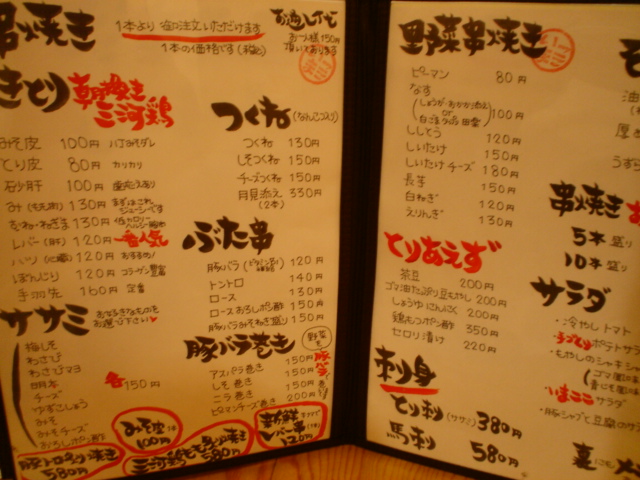 串焼き
1本より御注文いただけます
1本の価格です(税込)
お一人様150円
頂いております
朝挽き
三河鶏
みそ皮 100円 八丁みそダレ
とり皮 80円 カリカリ
砂肝 100円 歯応えあり
み(もも肉) 130円
むね・ねぎま 130円
レバー(肝) 120円 一番人気
ハツ(心臓) 120円 おすすめ!
ぼんじり 120円 コラーゲン豊富
手羽先 160円 定番
ササミ
お好きなものを
お選び下さい
梅しそ
わさび
わさびマヨ
明太
チーズ
ゆずこしょう
みそ
みそチーズ
おろしポン酢
各150円
つくね(なんこつ入り)
つくね 130円
しそつくね 150円
チーズつくね 150円
月見添え 330円
(2本)
ぶた串
豚バラ 120円
トントロ 140円
ロース 130円
ロースおろしポン酢 150円
豚バラみそねぎ盛り 150円
豚バラ巻き
アスパラ巻き 150円
しそ巻き 150円
ニラ巻き 200円
ピーマンチーズ巻き 200円
豚トロねぎ焼き
580円
みそ皮
100円
三河鶏もも丸焼き
580円
新鮮
レバー串
120円
野菜串焼き
ピーマン 80円
なす 100円
ししとう 120円
しいたけ 150円
しいたけチーズ 180円
長芋 150円
白ねぎ 120円
えりんぎ 130円
とりあえず
茶豆 200円
ゴマ油たっぷり豆もやし 200円
しょうゆにんにく 200円
鶏もつポン酢 350円
セロリ漬け 220円
刺身
とり刺(ササミ) 380円
馬刺 580円
串焼き
5本盛り
10本盛り
サラダ
・冷やしトマト
ポテトサラ
・もやしのシャキシャ
・いまここサラダ
・豚シャブと豆腐のサラ